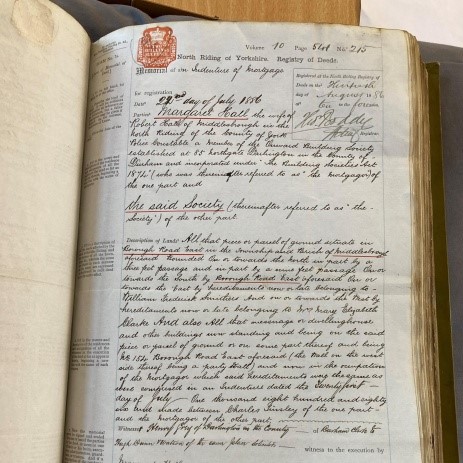 Volume 10 Page 564 No. 215
North Riding of Yorkshire. Registry of Deeds.
Memorial of an Indenture of Mortgage
Registered at the North Riding Registry
of Deeds
day of August 1886
at in the forenoon
Registrar.
for registration
Date 22nd day of July 1886
Parties Margaret Hall the wife of
Robert Hall of Middlesbrough in the
north Riding of the County of York
Police Constable a Member of the Onward Building Society
established at 85 Northgate Darlington in the County of
Durham and incorporated under "the Building Societies Act
1874" (who was thereinafter refered to as "the Mortgagor") of
the one part and
The said Society (thereinafter refered to as "the
Society") of the other part
Description of Lands All that piece or parcel of ground situate in
Borough Road East in the Township and Parish of Middlesbrough
aforesaid Bounded On or towards the north in part by a
three feet passage and in part by a nine feet passage On or
towards the South by Borough Road East aforesaid On or
towards the East by hereditaments now or late belonging to
William Frederick Smithers And on or towards the West by
hereditaments now or late belonging to Mrs Mary Elizabeth
Clarke And also All that messuage or dwellinghouse
and other buildings now standing and being on the said
piece or parcel of ground or on some part thereof and being
No 154 Borough Road East aforesaid (the Wall on the west
side thereof being a party Wall) and now in the occupation
of the Mortgagor which said hereditaments were the same as
were comprised in an Indenture dated the Twentyfirst
day of July One thousand eight hundred and eighty
six and made between Charles Tinsley of the one part
and the mortgagor of the other part
Witnesses Henry Frey of Darlington in the County of Durham Clerk &
Hugh Dunn Watson of the same place
witness to the execution by